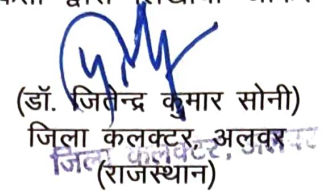 (डॉ. जितेन्द्र कुमार सोनी)
जिला कलक्टर, अलवर
जिला कलेक्टर, अलवर
(राजस्थान)